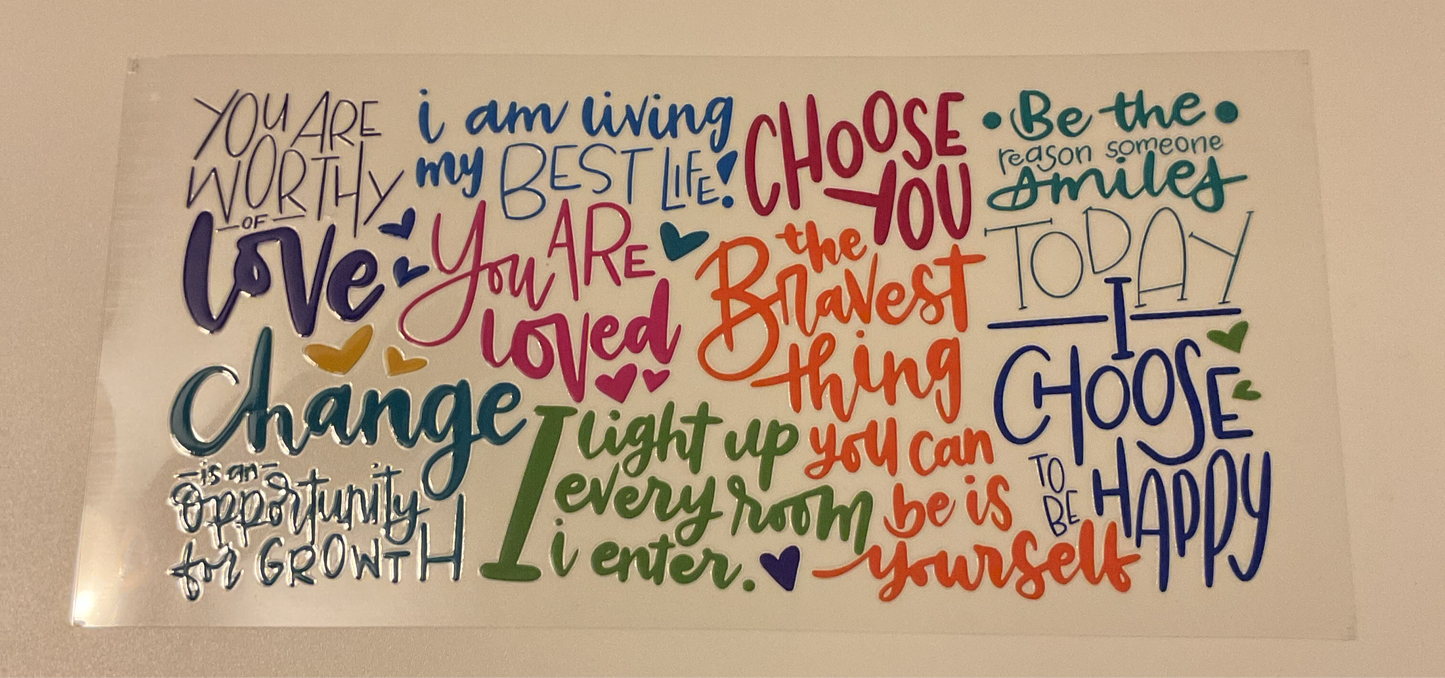 YOU ARE
WORTHY
OF
love
i am living
my BEST LIFE!
CHOOSE
YOU
Be the
reason someone
smiles
You ARE
loved
the
Bravest
thing
you can
be is
yourself
TODAY
I
CHOOSE
TO
BE
HAPPY
change
is an
opportunity
for GROWTH
I light up
every room
i enter.